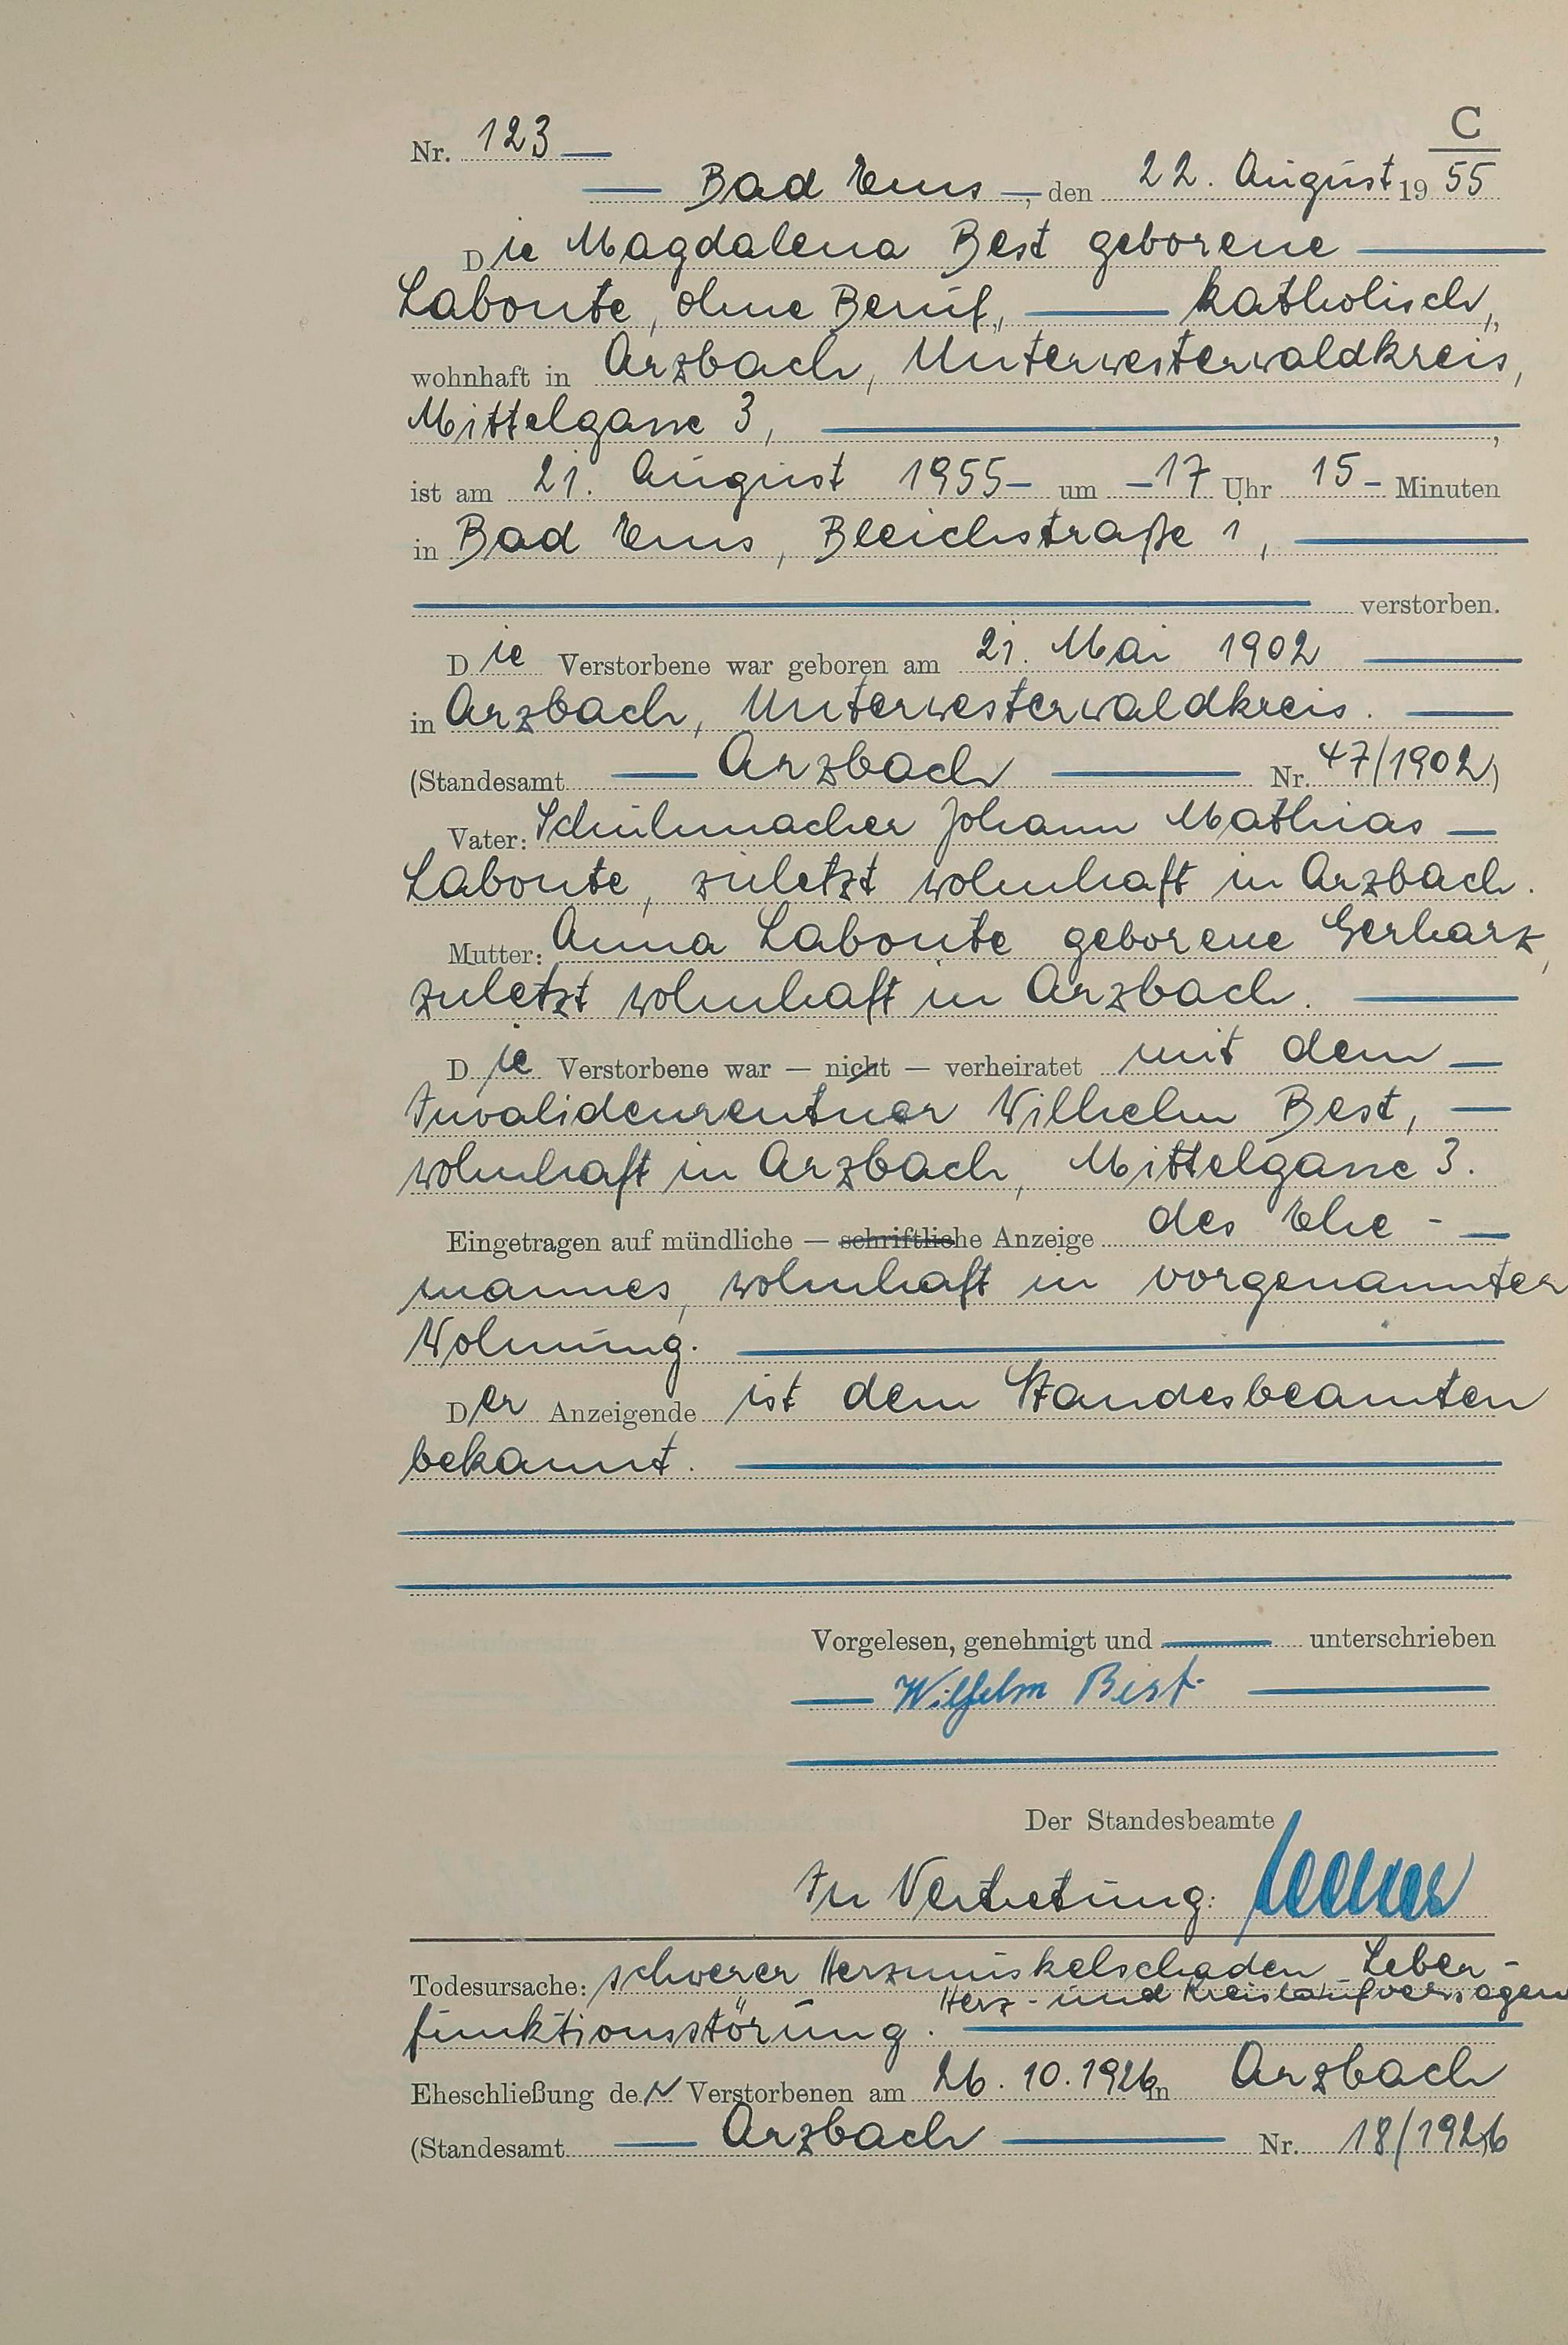 C
Nr. 123
Bad Ems, den 22. August 1955
Die Magdalena Best geborene
Labonte, ohne Beruf, katholisch,
wohnhaft in Arzbach, Unterwesterwaldkreis,
Mittelgasse 3,
ist am 21. August 1955 um 17 Uhr 15 Minuten
in Bad Ems, Bleichstraße 1,
verstorben.
Die Verstorbene war geboren am 21. Mai 1902
in Arzbach, Unterwesterwaldkreis.
(Standesamt Arzbach Nr. 47/1902)
Vater: Schuhmacher Johann Mathias
Labonte, zuletzt wohnhaft in Arzbach.
Mutter: Anna Labonte geborene Gerharz,
zuletzt wohnhaft in Arzbach.
Die Verstorbene war — nicht — verheiratet mit dem
Invalidenrentner Wilhelm Best,
wohnhaft in Arzbach, Mittelgasse 3.
Eingetragen auf mündliche — schriftliche Anzeige des Ehe-
mannes, wohnhaft in vorgenannter
Wohnung.
Der Anzeigende ist dem Standesbeamten
bekannt.
Vorgelesen, genehmigt und unterschrieben
Wilhelm Best
Der Standesbeamte
In Vertretung:
Todesursache: schwerer Herzmuskelschaden, Leber-
Herz- und Kreislaufversagen
funktionsstörung.
Eheschließung der Verstorbenen am 26.10.1926 in Arzbach
(Standesamt Arzbach Nr. 18/1926